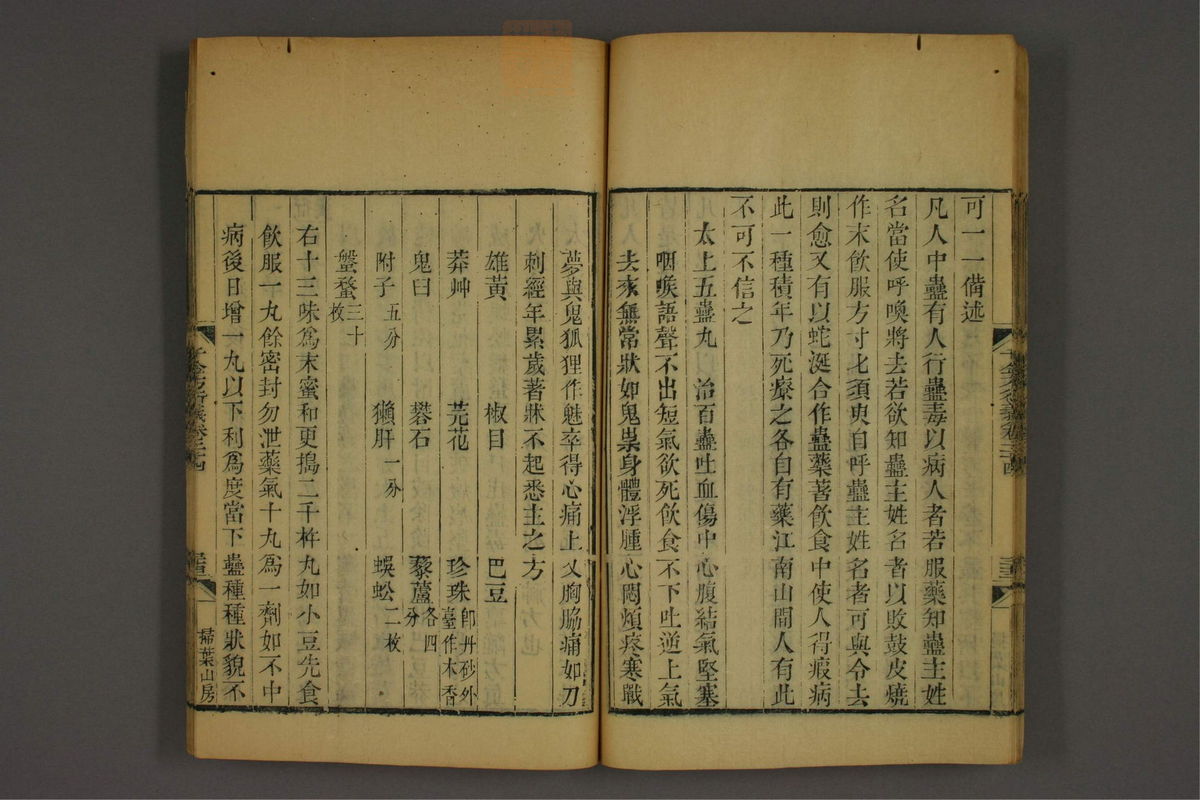 可一一備述
凡人中蠱有人行蠱毒以病人者若服藥知蠱主姓
名當使呼喚將去若欲知蠱主姓名者以敗鼓皮燒
作末飲服方寸匕須臾自呼蠱主姓名者可與令去
則愈又有以蛇涎合作蠱藥著飲食中使人得瘕病
此一種積年乃死療之各自有藥江南山間人有此
不可不信之
太上五蠱丸 治百蠱吐血傷中心腹結氣堅塞
咽喉語聲不出短氣欲死飲食不下吐逆上氣
去來無常狀如鬼祟身體浮腫心悶煩疼寒戰
夢與鬼狐狸作魅卒得心痛上叉胸脇痛如刀
刺經年累歲著牀不起悉主之方
雄黃 椒目 巴豆
莽艸 芫花 珍珠 卽丹砂外臺作木香
鬼臼 礬石 藜蘆各四分
附子五分 獺肝一分 蜈蚣二枚
盤蝥三十枚
右十三味爲末蜜和更搗二千杵丸如小豆先食
飲服一丸餘密封勿泄藥氣十丸爲一劑如不中
病後日增一丸以下利爲度當下蠱種種狀貌不
掃葉山房